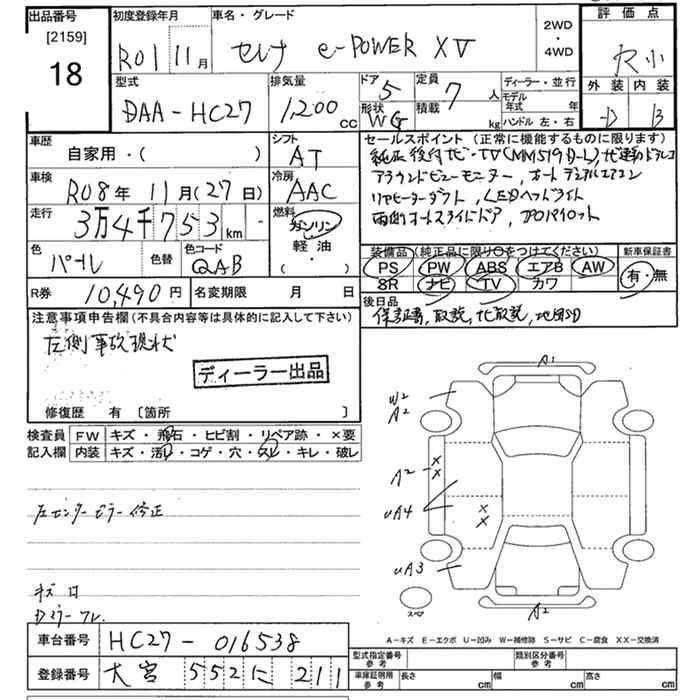 出品番号 [2159] 18
初度登録年月 R01 11月
車名・グレード セレナ e-POWER XV
2WD・4WD
評価点 R小
外装 D 内装 B
型式 DAA-HC27
排気量 1,200 CC
ドア 5 形状 WG
定員 7人 積載 kg
ディーラー・並行
モデル年式 年
ハンドル 左・右
車歴 自家用・( )
シフト AT
車検 R08年 11月(27日)
冷房 AAC
走行 3万4千753km
燃料 ガソリン 軽油・( )
色 パール 色替 色コード QAB
R券 10,490円 名変期限 月 日
セールスポイント (正常に機能するものに限ります)
純正後付ナビ・TV(MM519D-L)
アラウンドビューモニター、オートデュアルエアコン
リヤヒーターダクト、LEDヘッドライト
両側オートスライドドア、プロパイロット
装備品 (純正品に限り〇をつけてください) 新車保証書
PS PW ABS エアB AW 有・無
SR ナビ TV カワ
後日品
保証書、取説、ナビ取説、地図SD
注意事項申告欄 (不具合内容等は具体的に記入して下さい)
左側事故現状
ディーラー出品
修復歴 有 〔箇所 〕
検査員記入欄 FW キズ・飛石・ヒビ割・リペア跡・×要
内装 キズ・汚レ・コゲ・穴・スレ・キレ・破レ
左センターピラー修正
キズ 凹
Dミラー ワレ
A1
W2
A2
A2
UA4
UA3
スペア
A2
A-キズ E-エクボ U-凹み W-補修跡 S-サビ C-腐食 XX-交換済
車台番号 HC27-016538
登録番号 大宮 552 に 211
型式指定番号 参考 類別区分番号 参考
車庫証明用 参考 長さ cm 幅 cm 高さ cm